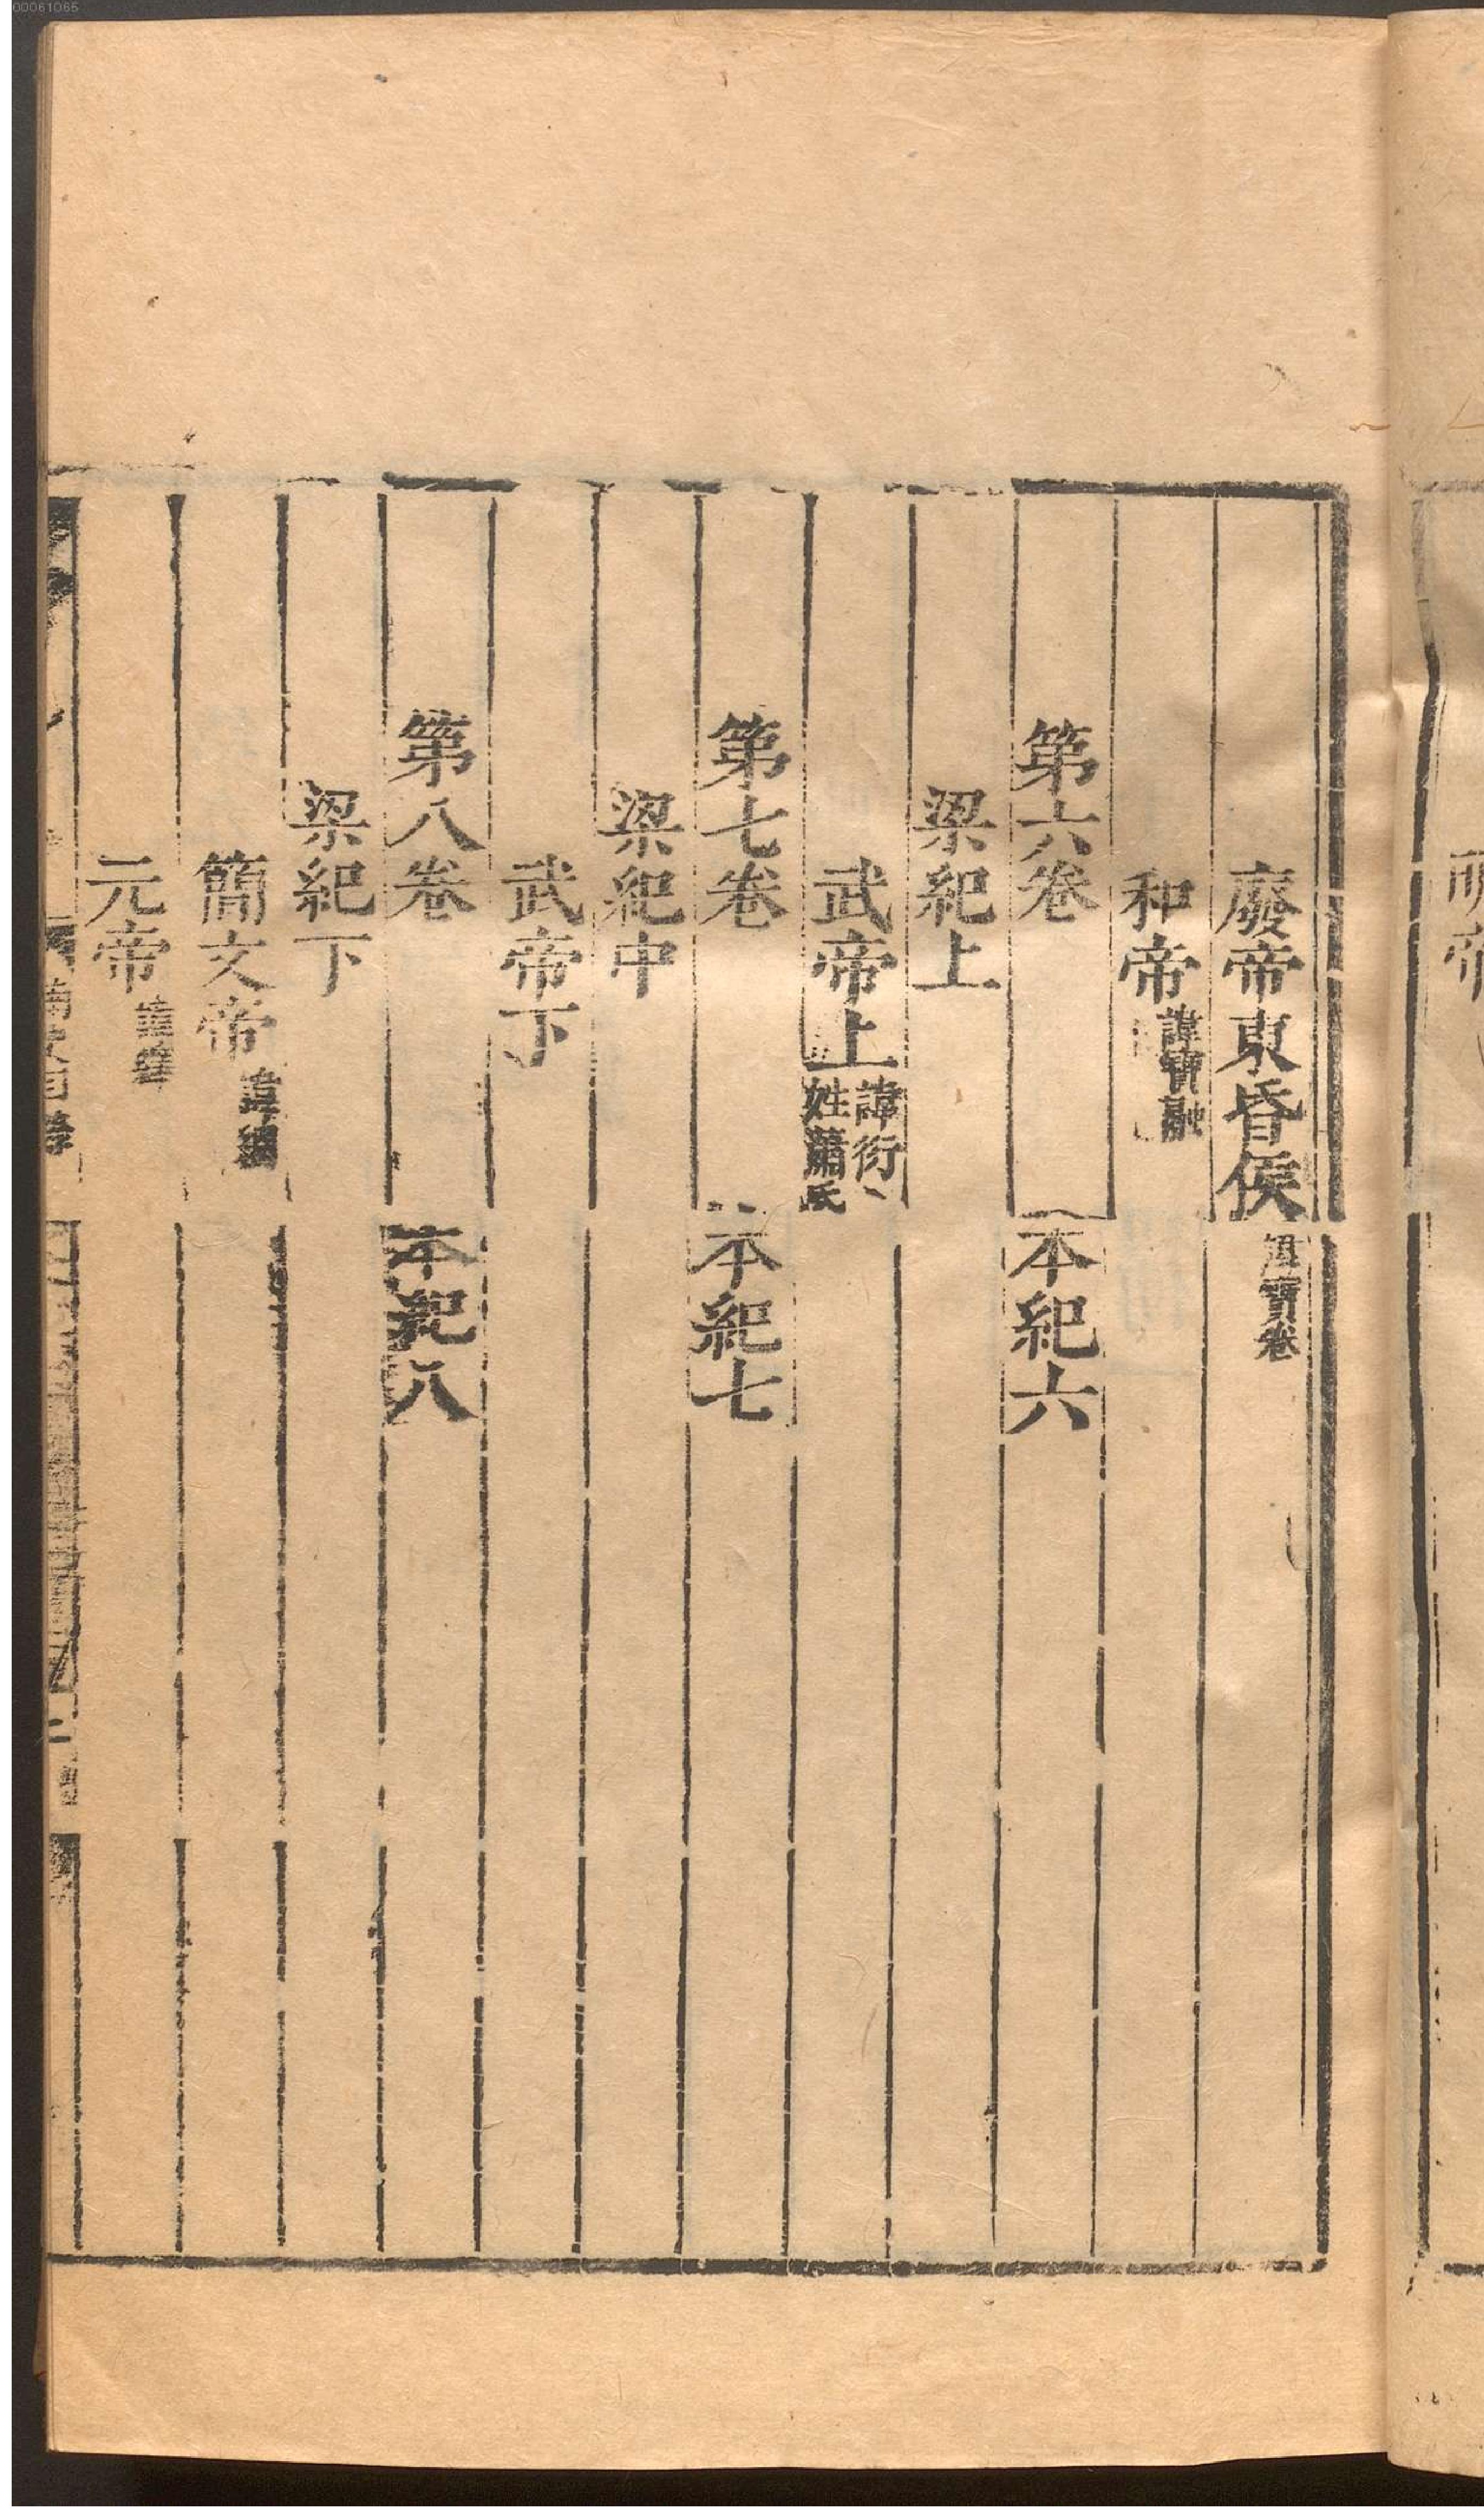 廢帝東昏侯諱寶卷
和帝諱寶融
第六卷 本紀六
梁紀上
武帝上諱衍姓蕭氏
第七卷 本紀七
梁紀中
武帝下
第八卷 本紀八
梁紀下
簡文帝諱綱
元帝諱繹
00061065